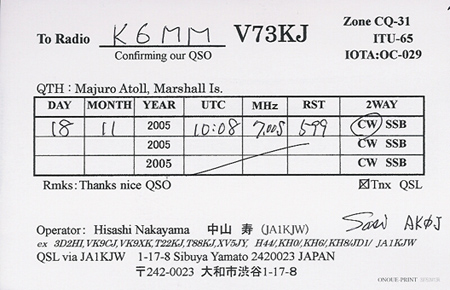 To Radio K6MM V73KJ Zone CQ-31
Confirming our QSO ITU-65
IOTA:OC-029
QTH : Majuro Atoll, Marshall Is.
DAY MONTH YEAR UTC MHz RST 2WAY
18 11 2005 10:08 7.005 599 CW SSB
2005 CW SSB
2005 CW SSB
Rmks: Thanks nice QSO ☑Tnx QSL
Operator: Hisashi Nakayama 中山 寿 (JA1KJW) AKØJ
ex 3D2HI,VK9CJ,VK9XK,T22KJ,T88KJ,XV5JY, H44/,KH0/,KH6/,KH8/JD1/ JA1KJW
QSL via JA1KJW 1-17-8 Sibuya Yamato 2420023 JAPAN
〒242-0023 大和市渋谷1-17-8
ONOUE-PRINT